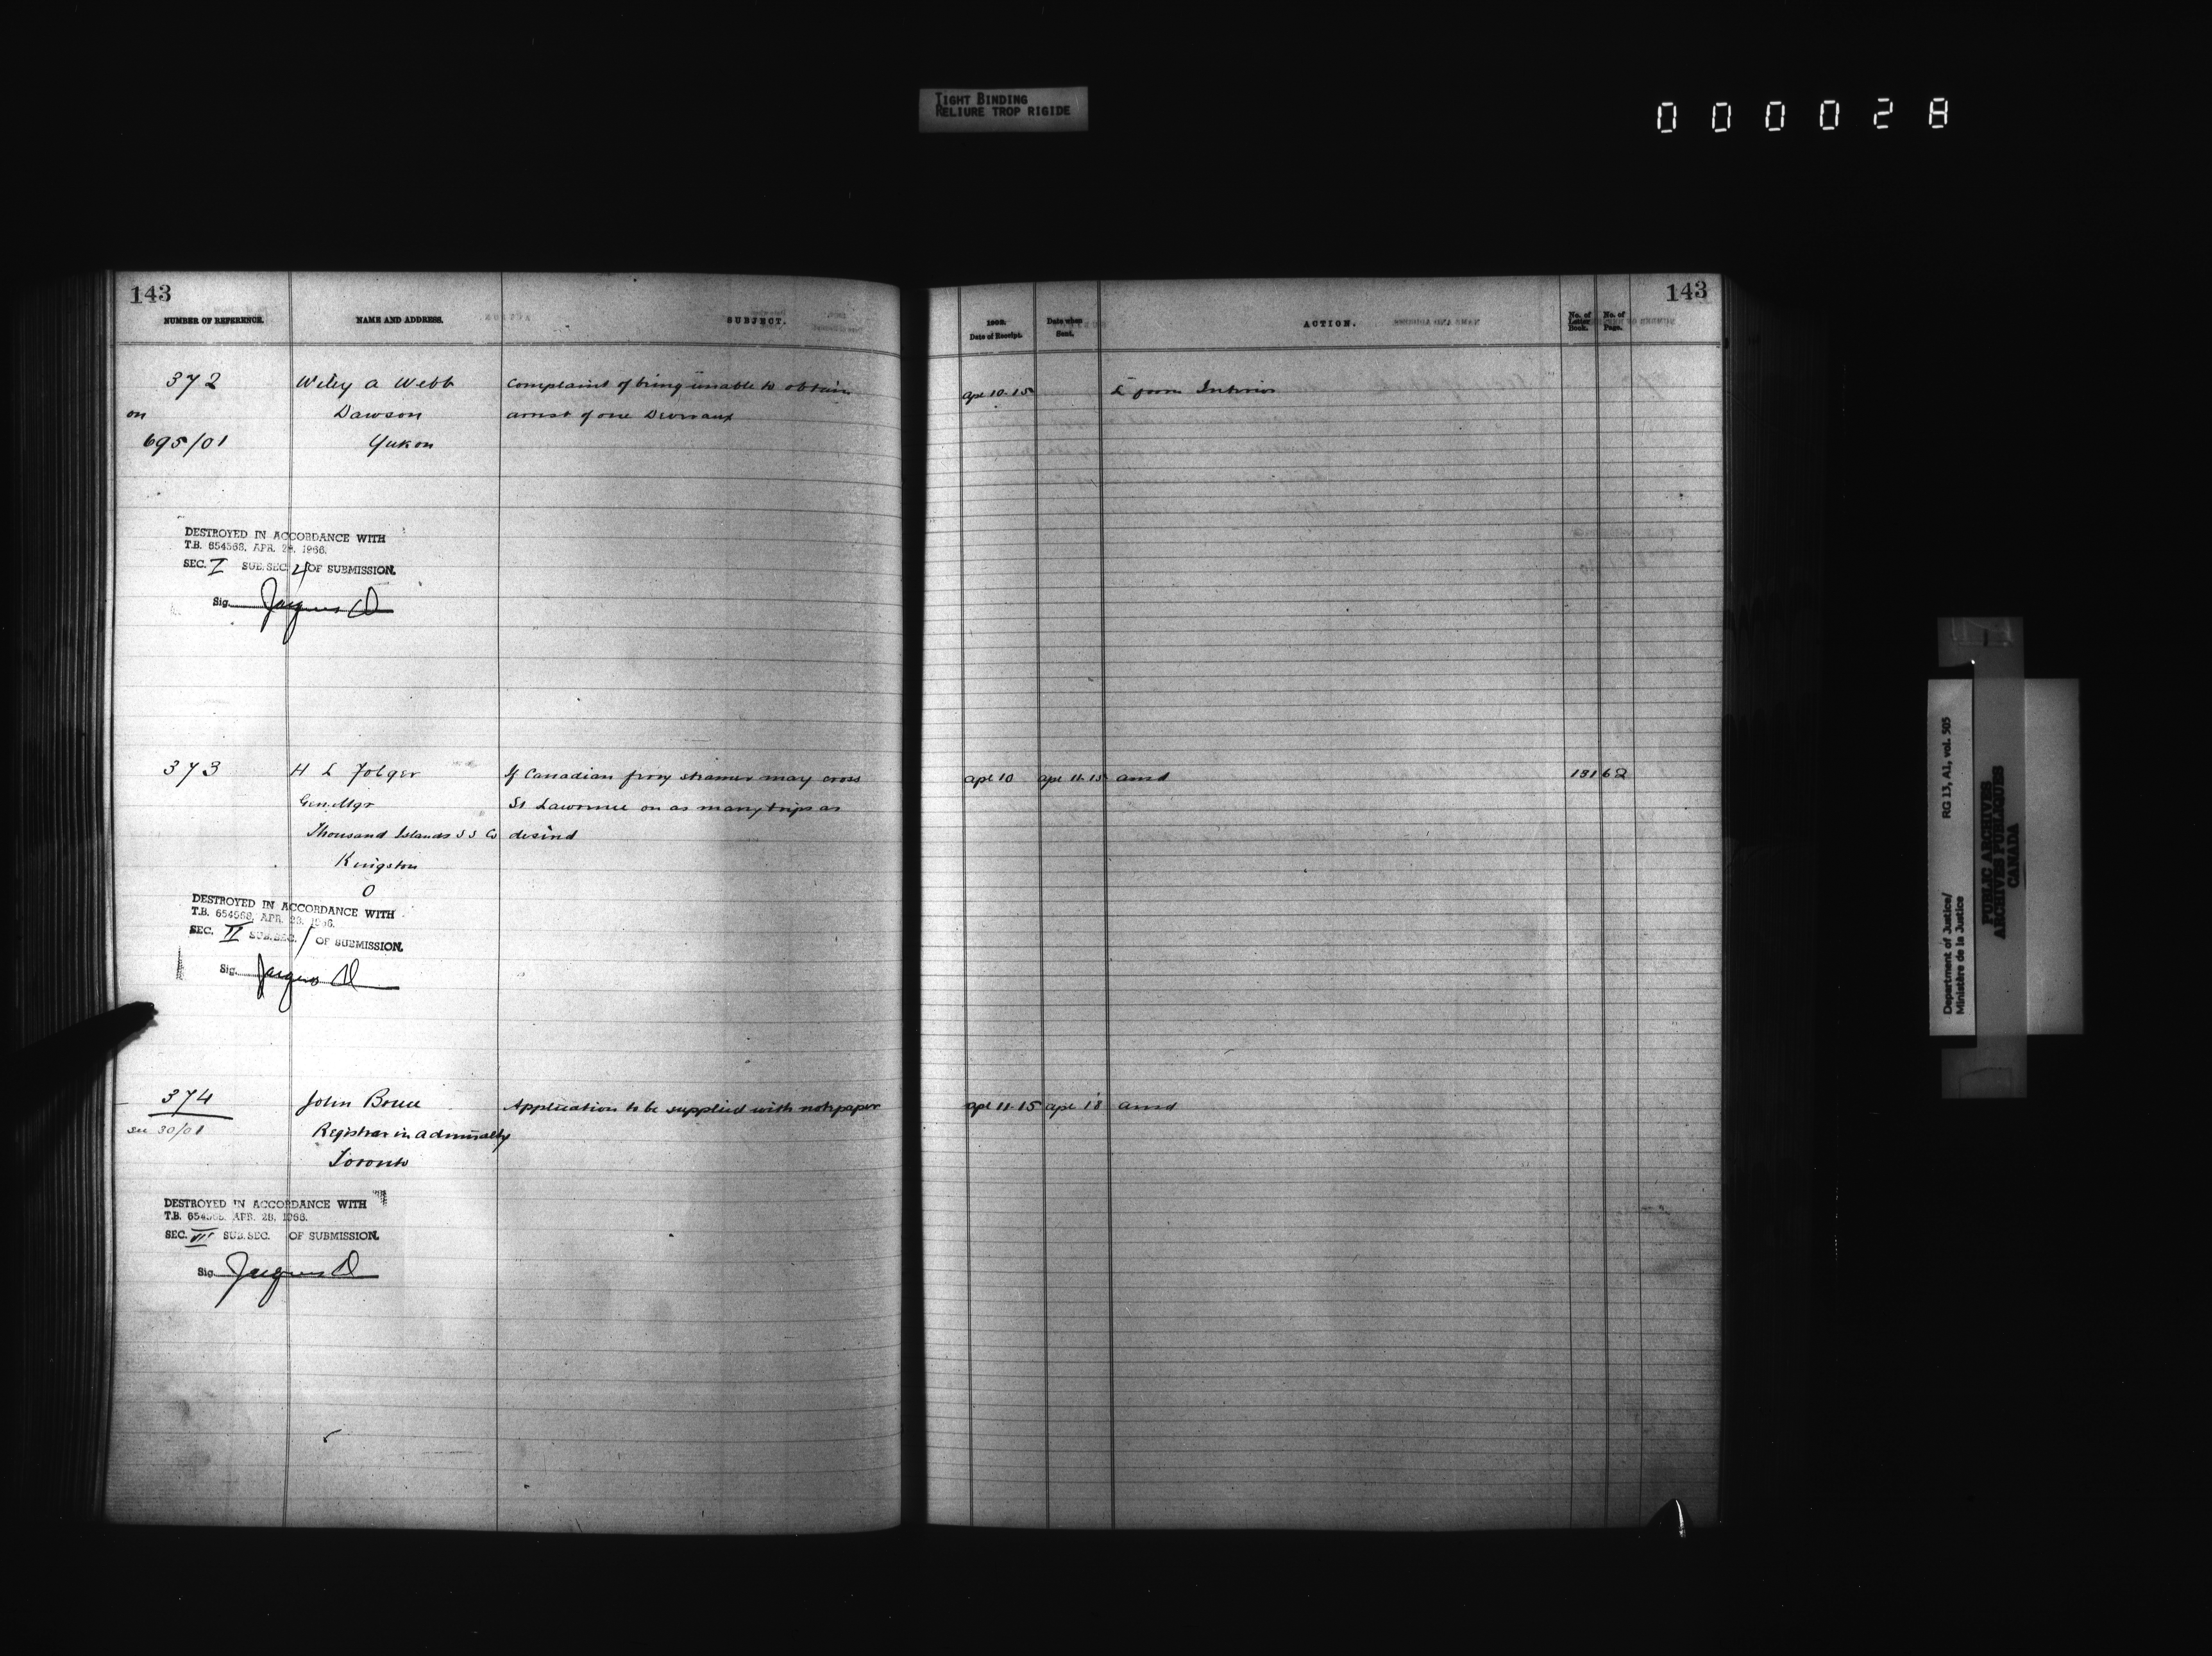 TIGHT BINDING
RELIURE TROP RIGIDE
000028
143
NUMBER OF REFERENCE.
NAME AND ADDRESS.
SUBJECT.
372
Wiley A Webb
Complaint of being unable to obtain
on
Dawson
arrest of one
695/01
Yukon
DESTROYED IN ACCORDANCE WITH
T.B. 654568, APR. 28, 1966.
SEC. I SUB.SEC. 4 OF SUBMISSION.
Sig. Jacques D
373
H L Folger
If Canadian ferry steamer may cross
Gen. Mgr
St Lawrence on as many trips as
Thousand Islands S S Co
desired
Kingston
O
DESTROYED IN ACCORDANCE WITH
T.B. 654568, APR. 28, 1966.
SEC. II SUB.SEC. 1 OF SUBMISSION.
Sig. Jacques D
374
John Bruce
Application to be supplied with notepaper
see 30/01
Registrar in Admiralty
Toronto
DESTROYED IN ACCORDANCE WITH
T.B. 654568, APR. 28, 1966.
SEC. VI SUB.SEC. OF SUBMISSION.
Sig. Jacques D
143
1902.
Date of Receipt.
Date when
Sent.
ACTION.
No. of
Letter
Book.
No. of
Page.
Apl 10 15
L from Interior
Apl 10
Apl 11 15
ansd
131
62
Apl 11 15
Apl 18
ansd
Department of Justice/
Ministère de la Justice
RG 13, A1, vol. 505
PUBLIC ARCHIVES
ARCHIVES PUBLIQUES
CANADA